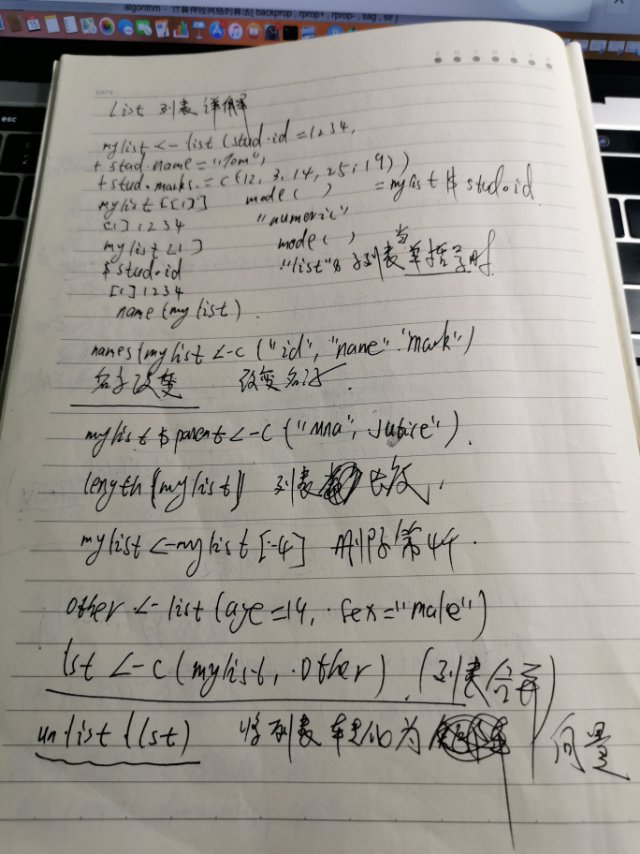 algorithm： 计算神经网络的算法( backprop , rprop+ , rprop- , sag , slr )
esc
DATE
S M T W T F S
List 列表详解
mylist <- list (stud.id = 1234,
+ stud.name = "Tom",
+ stud.marks = c(12, 3, 14, 25, 19))
mylist [[1]] mode ( ) = mylist $ stud.id
[1] 1234 "numeric"
mylist [1] mode ( )
$ stud.id "list" 子列表 当单括号时
[1] 1234
name (mylist)
names (mylist <-c ("id", "name" "mark")
名字改变 改变名字
mylist $ parent <-c ("Mna",
length (mylist) 列表长度
mylist <-mylist [-4] 删除第4个.
other <- list (age=14, sex="male")
lst <-c (mylist, other) (列表合并)
unlist (lst) 将列表转化为 向量